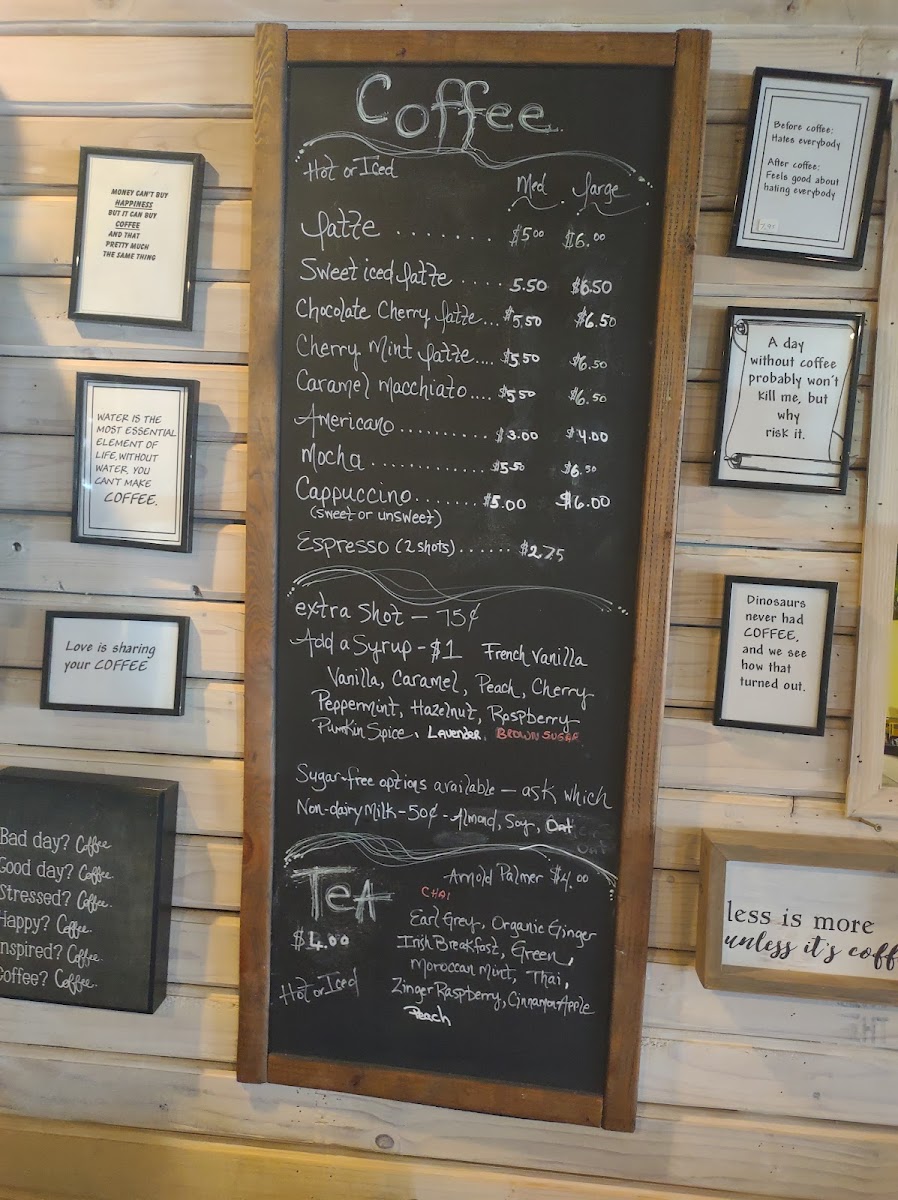 Coffee
Hot or Iced
Med Large
Latte ........ $5.00 $6.00
Sweet iced Latte ..... 5.50 $6.50
Chocolate Cherry Latte... $5.50 $6.50
Cherry Mint Latte.... $5.50 $6.50
Caramel Macchiato .... $5.50 $6.50
Americano .......... $3.00 $4.00
Mocha ............. $5.50 $6.50
Cappuccino ........ $5.00 $6.00
(sweet or unsweet)
Espresso (2 shots) ...... $2.75
extra shot - 75¢
Add a Syrup - $1 French Vanilla
Vanilla, Caramel, Peach, Cherry
Peppermint, Hazelnut, Raspberry
Pumkin Spice, LAVENDER, BROWN SUGAR
Sugar-free options available - ask which
Non-dairy Milk - 50¢ - Almond, Soy, Oat
Tea
$4.00
Hot or Iced
Arnold Palmer $4.00
CHAI
Earl Grey, Organic Ginger
Irish Breakfast, Green,
Moroccan Mint, Thai,
Zinger Raspberry, Cinnamon Apple
Peach
MONEY CAN'T BUY
HAPPINESS
BUT IT CAN BUY
COFFEE
AND THAT
PRETTY MUCH
THE SAME THING
WATER IS THE
MOST ESSENTIAL
ELEMENT OF
LIFE, WITHOUT
WATER, YOU
CAN'T MAKE
COFFEE.
Love is sharing
your COFFEE
Bad day? Coffee.
Good day? Coffee.
Stressed? Coffee.
Happy? Coffee.
nspired? Coffee.
Coffee? Coffee.
Before coffee:
Hates everybody
After coffee:
Feels good about
hating everybody
A day
without coffee
probably won't
kill me, but
why
risk it.
Dinosaurs
never had
COFFEE,
and we see
how that
turned out.
less is more
unless it's coff